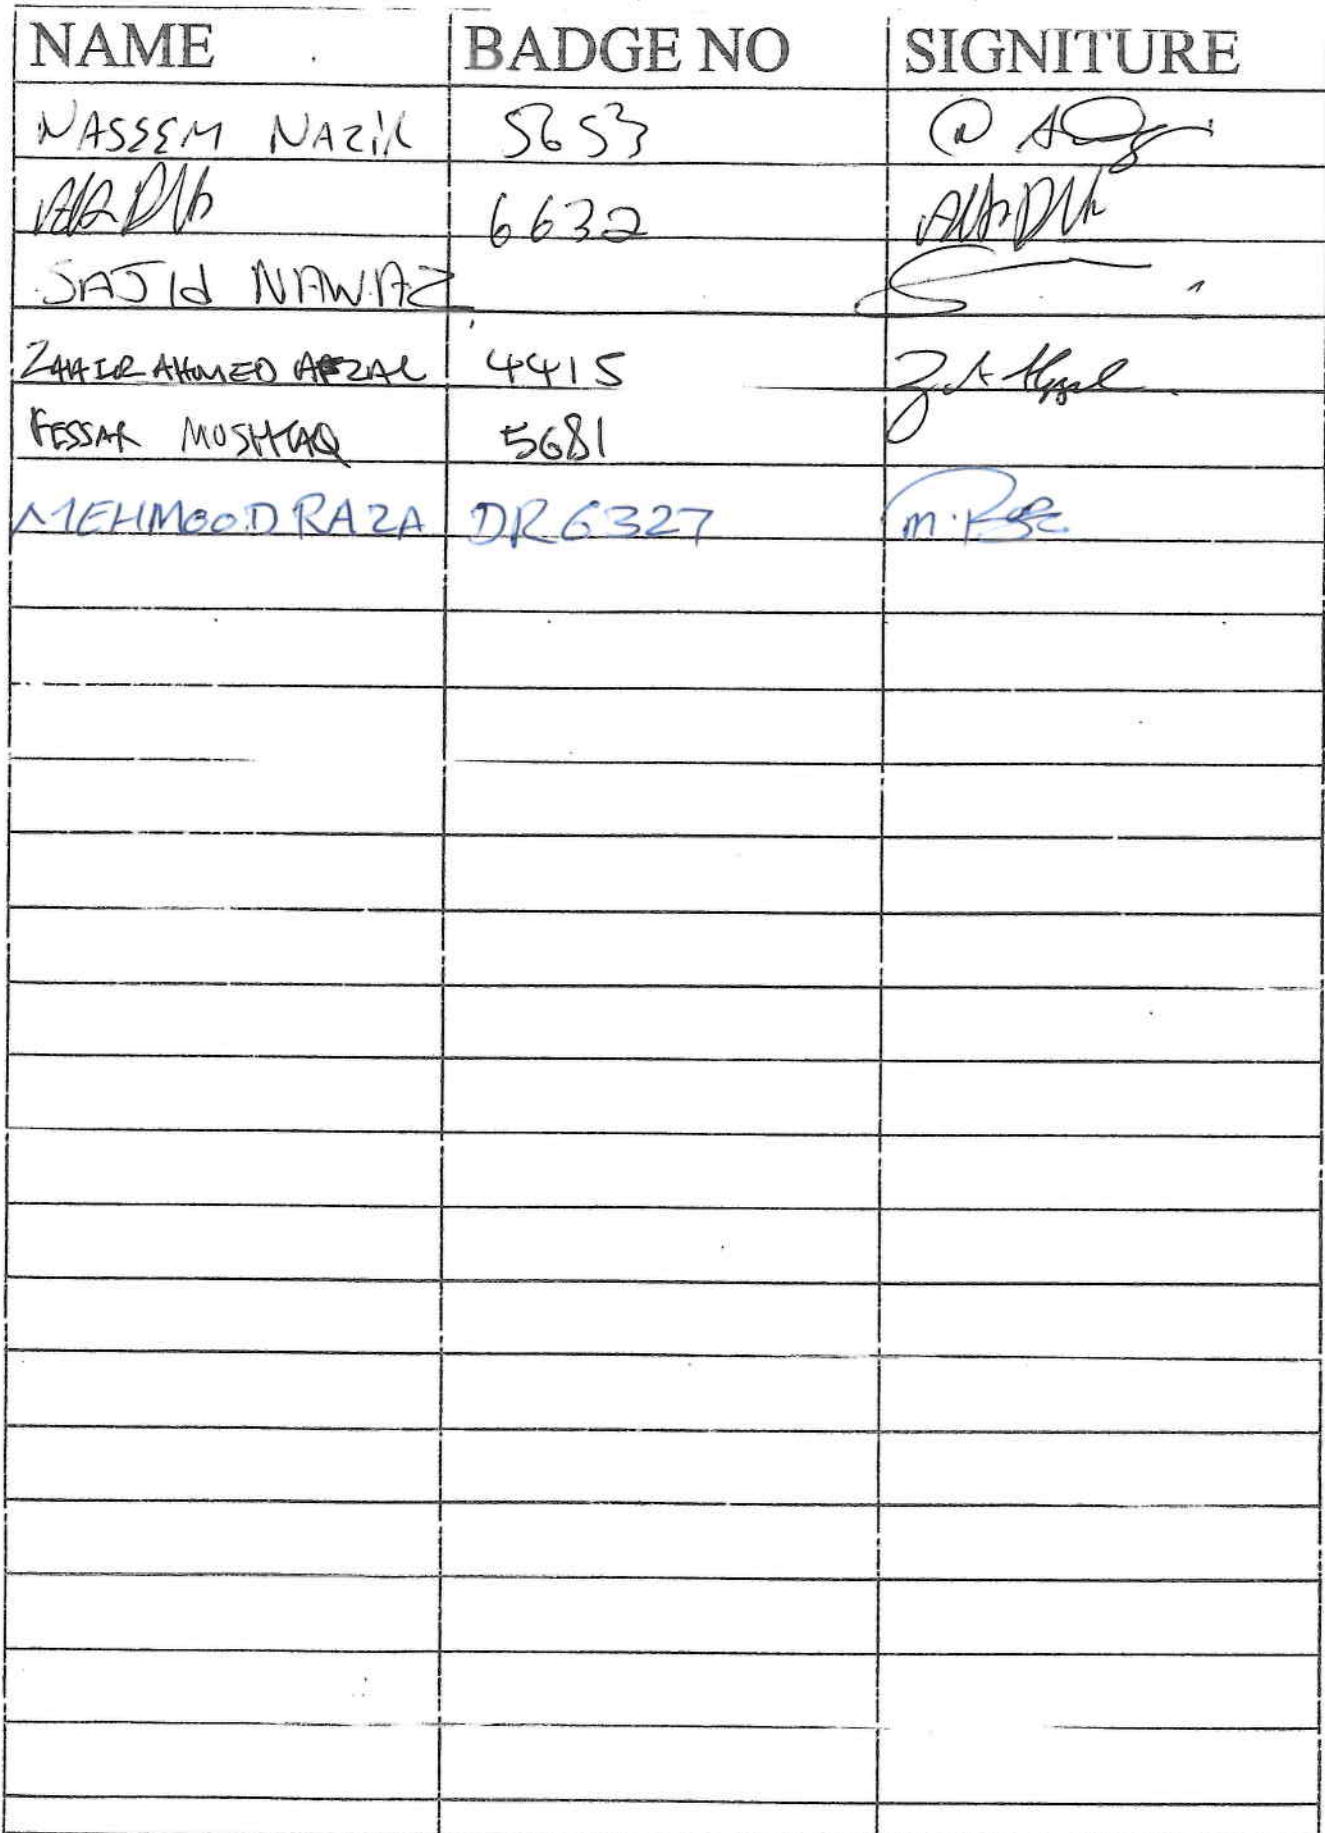 NAME BADGE NO SIGNITURE
NASSEEM NAZIR 5653
6632
SAJId NAWAZ
ZAHIR AHMED AFZAL 4415 Z. A Afzal
MUSHTAQ 5681
MEHMOOD RAZA DR 6327 M. Raza